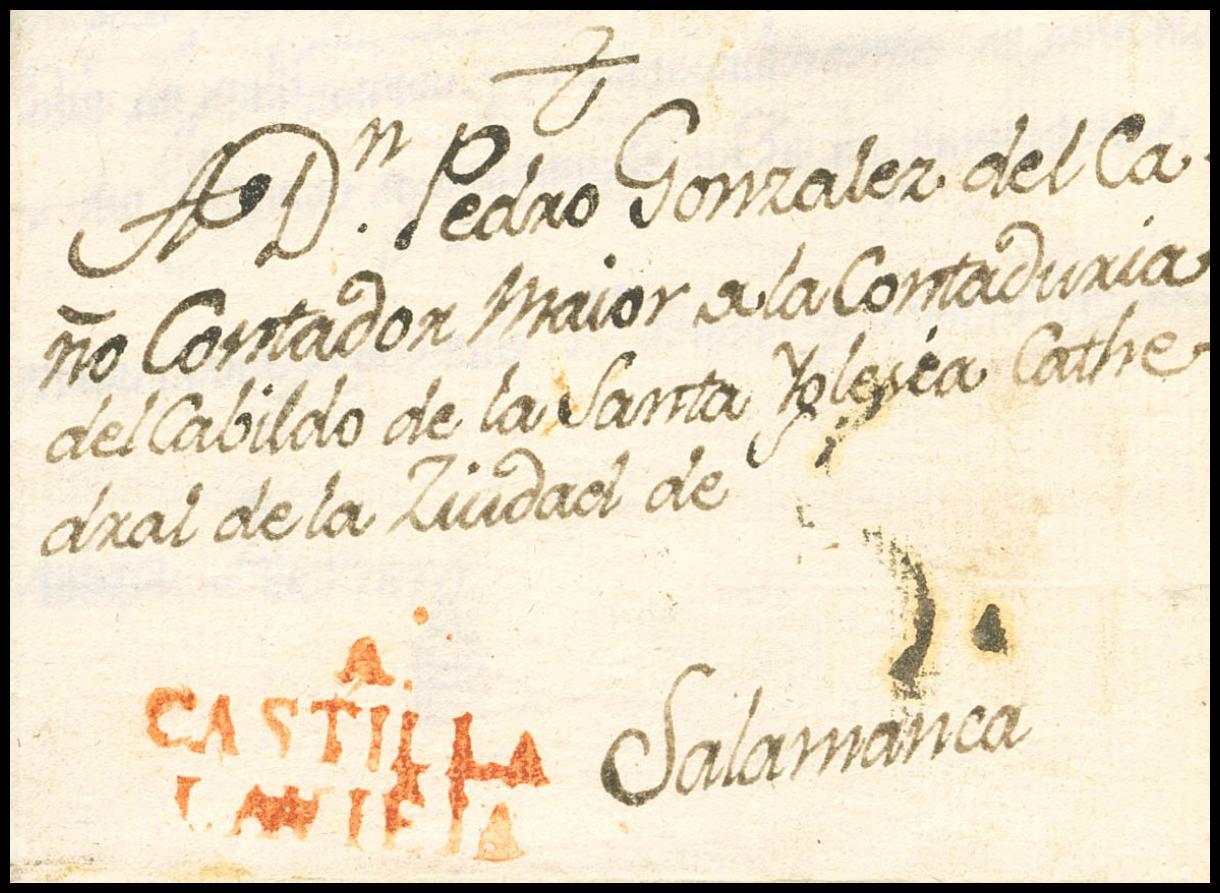 A Dⁿ. Pedro Gonzalez del Ca-
ño Contador Maior de la Contaduria
del Cabildo de la Santa Yglesia Cathe-
dral de la Ziudad de
Salamanca
A.
CASTILLA
LAVIEJA